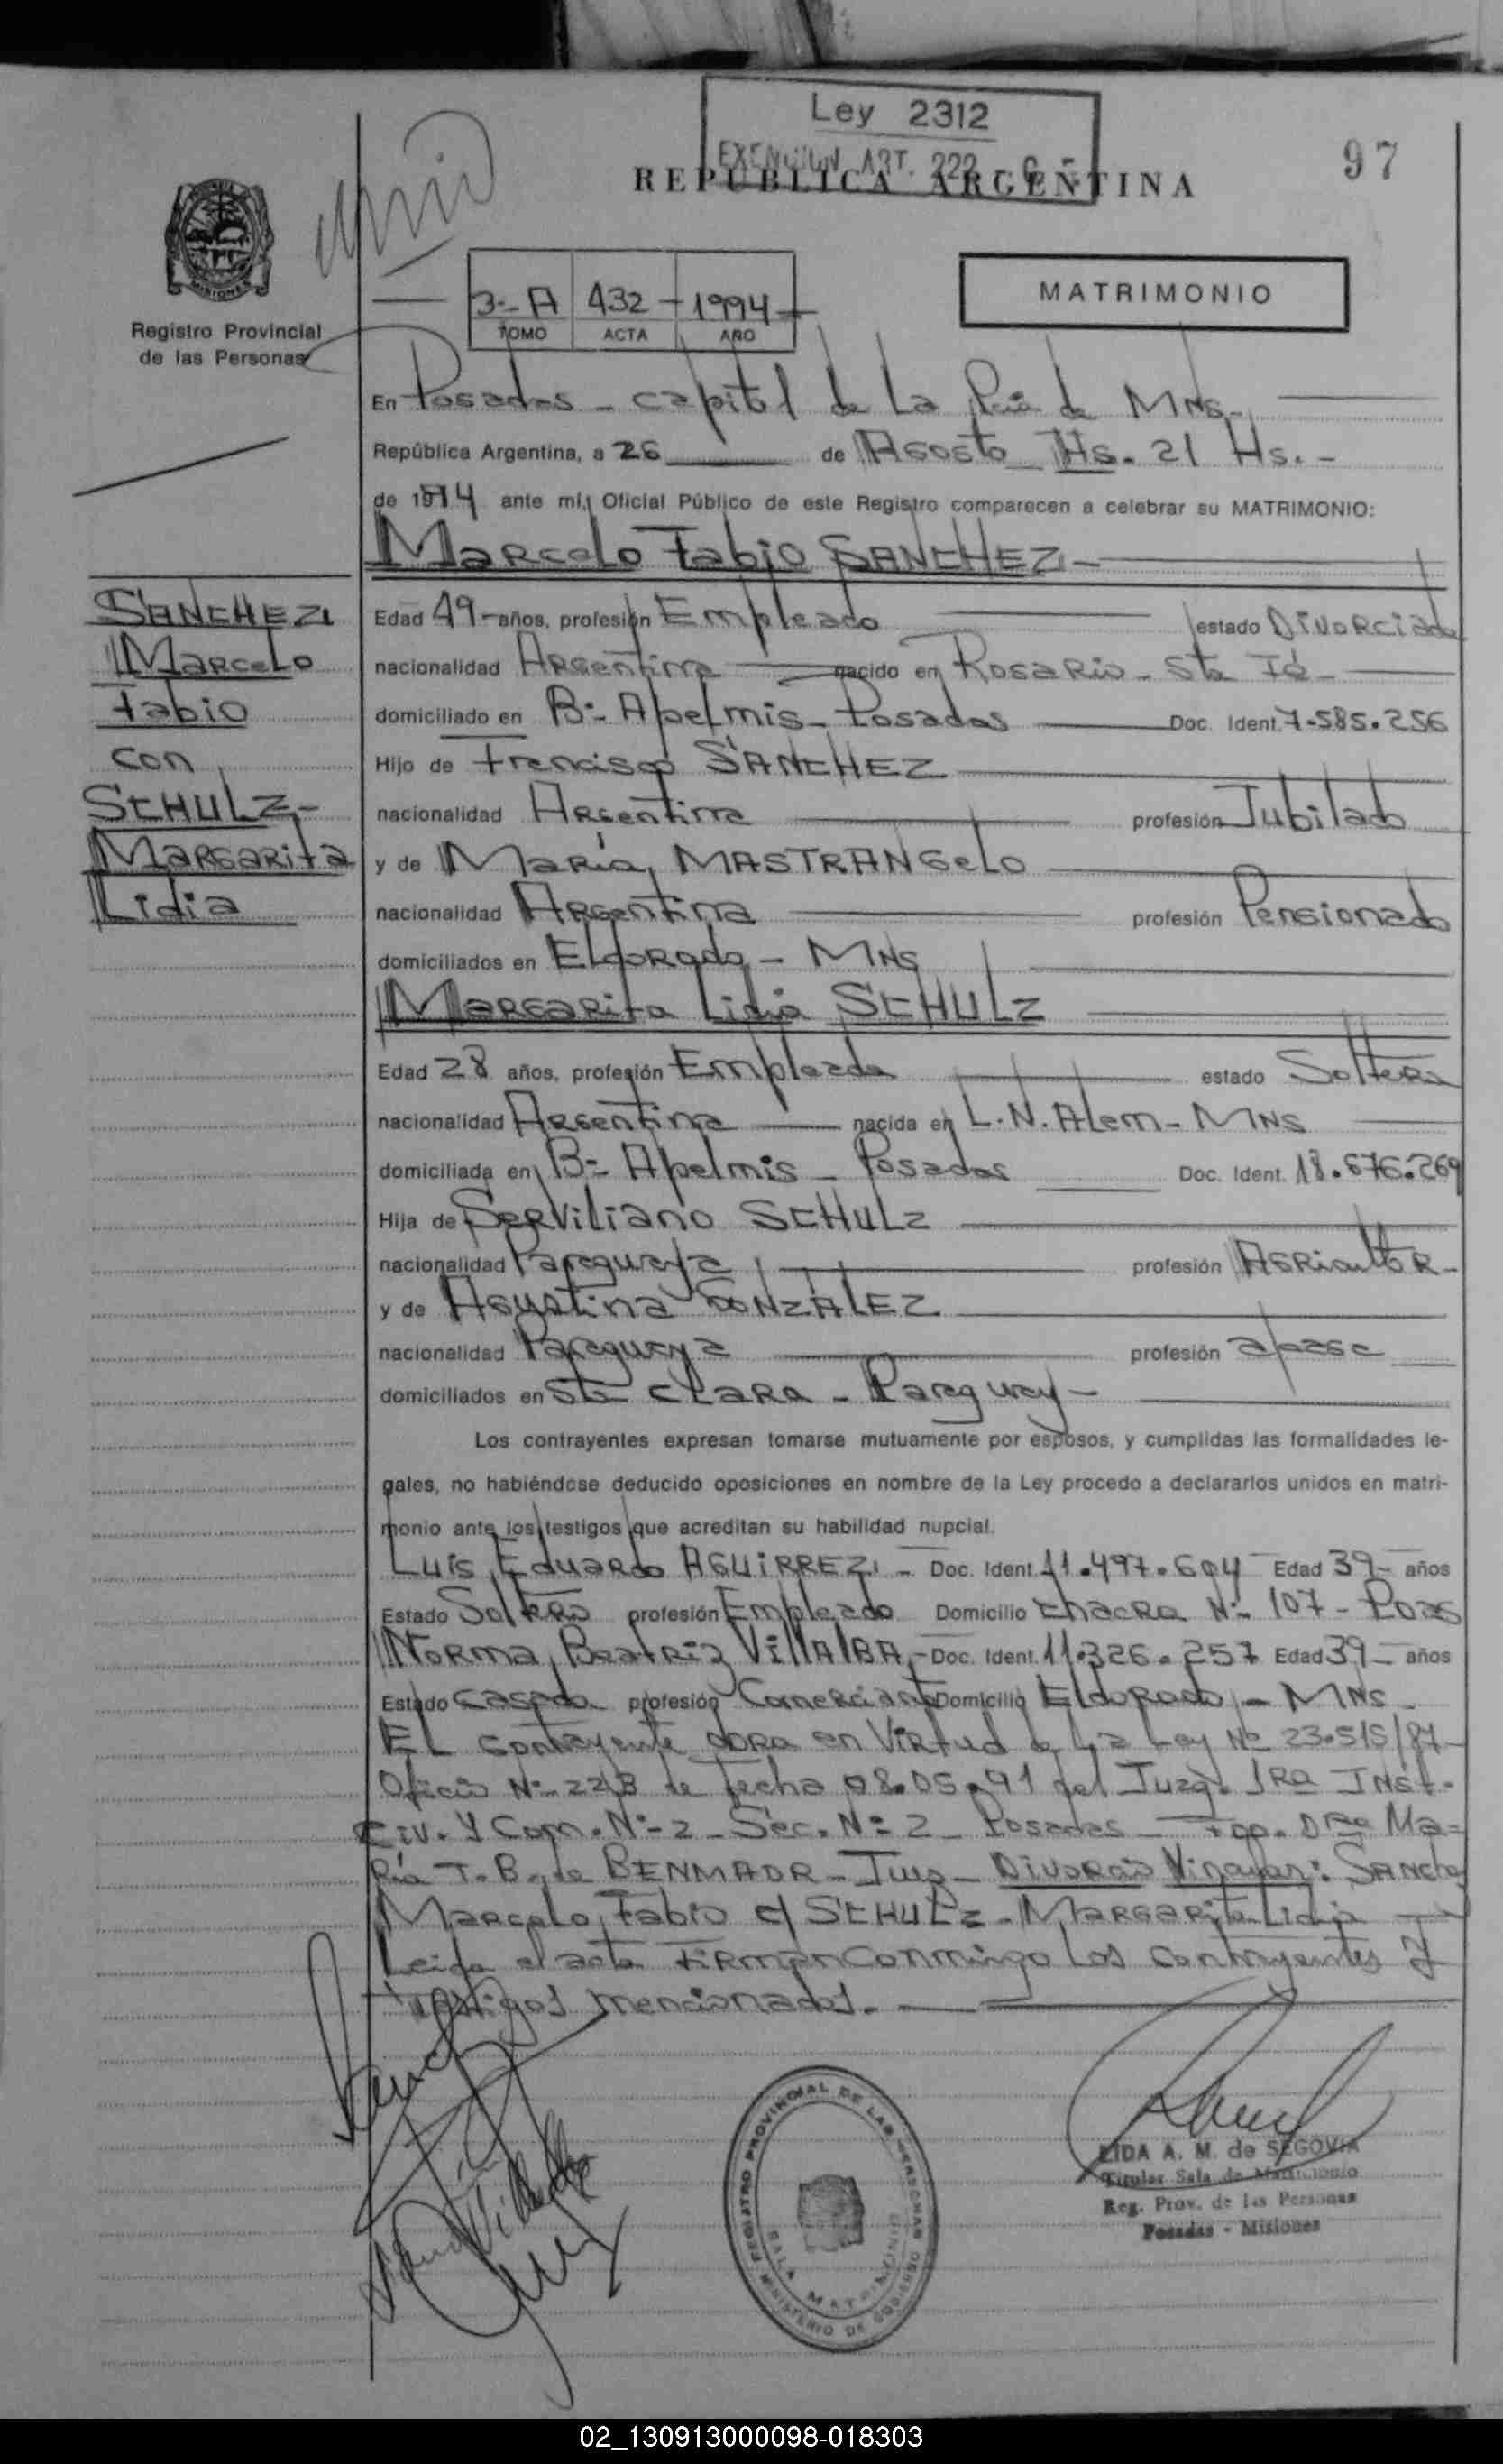 Ley 2312
EXENCION ART. 222
REPUBLICA ARGENTINA
97
MISIONES
Registro Provincial
de las Personas
3:- A 432 - 1994
TOMO ACTA AÑO
MATRIMONIO
En Posadas - capital de la Pcia de MNS.-
República Argentina, a 26 de Agosto Hs. 21 Hs.-
de 1994 ante mí, Oficial Público de este Registro comparecen a celebrar su MATRIMONIO:
Marcelo Fabio SANCHEZ.-
SANCHEZ
Marcelo
Fabio
con
SCHULZ-
Margarita
Lidia
Edad 49- años, profesión Empleado estado Divorciado
nacionalidad Argentina nacido en Rosario - Sta Fé -
domiciliado en B:- A pel mis - Posadas Doc. Ident. 7.585.256
Hijo de Francisco SANCHEZ
nacionalidad Argentina profesión Jubilado
y de María MASTRANGELO
nacionalidad Argentina profesión Pensionado
domiciliados en Eldorado - MNS
Margarita Lidia SCHULZ
Edad 28 años, profesión Empleada estado Soltera
nacionalidad Argentina nacida en L.N. Alem - MNS
domiciliada en B:- A pel mis - Posadas Doc. Ident. 18.676.269
Hija de Serviliano SCHULZ
nacionalidad Paraguaya profesión Agricultor-
y de Agustina GONZALEZ
nacionalidad Paraguaya profesión
domiciliados en Sta Clara - Paraguay -
Los contrayentes expresan tomarse mutuamente por esposos, y cumplidas las formalidades le-
gales, no habiéndose deducido oposiciones en nombre de la Ley procedo a declararlos unidos en matri-
monio ante los testigos que acreditan su habilidad nupcial.
Luis Eduardo AGUIRREZ.- Doc. Ident. 11.497.604 Edad 39- años
Estado Soltero profesión Empleado Domicilio chacra N:- 107 - Pdas
Norma Beatriz VillAlBA,- Doc. Ident. 11.326.257 Edad 39- años
Estado Casada profesión Comerciante Domicilio Eldorado - MNS
EL contrayente obra en Virtud de la Ley Nº 23.515/87-
Oficio N:- 223 de fecha 08.05.91 del Juzg. 1Ra Inst.-
Civ. y Com. N:- 2 - Sec. N:- 2 - Posadas - Fdo. Dra Ma-
ría T. B. de BENMAOR - Juez - Divorcio Vincular: Sanchez
Marcelo Fabio c/ SCHULZ - Margarita Lidia
Leída el acta firman conmigo los contrayentes y
testigos mencionados.-
REGISTRO PROVINCIAL DE LAS PERSONAS
MINISTERIO DE GOBIERNO
SALA MATRIMONIO
LIDA A. M. de SEGOVIA
Titular Sala de Matrimonio
Reg. Prov. de las Personas
Posadas - Misiones
02_130913000098-018303